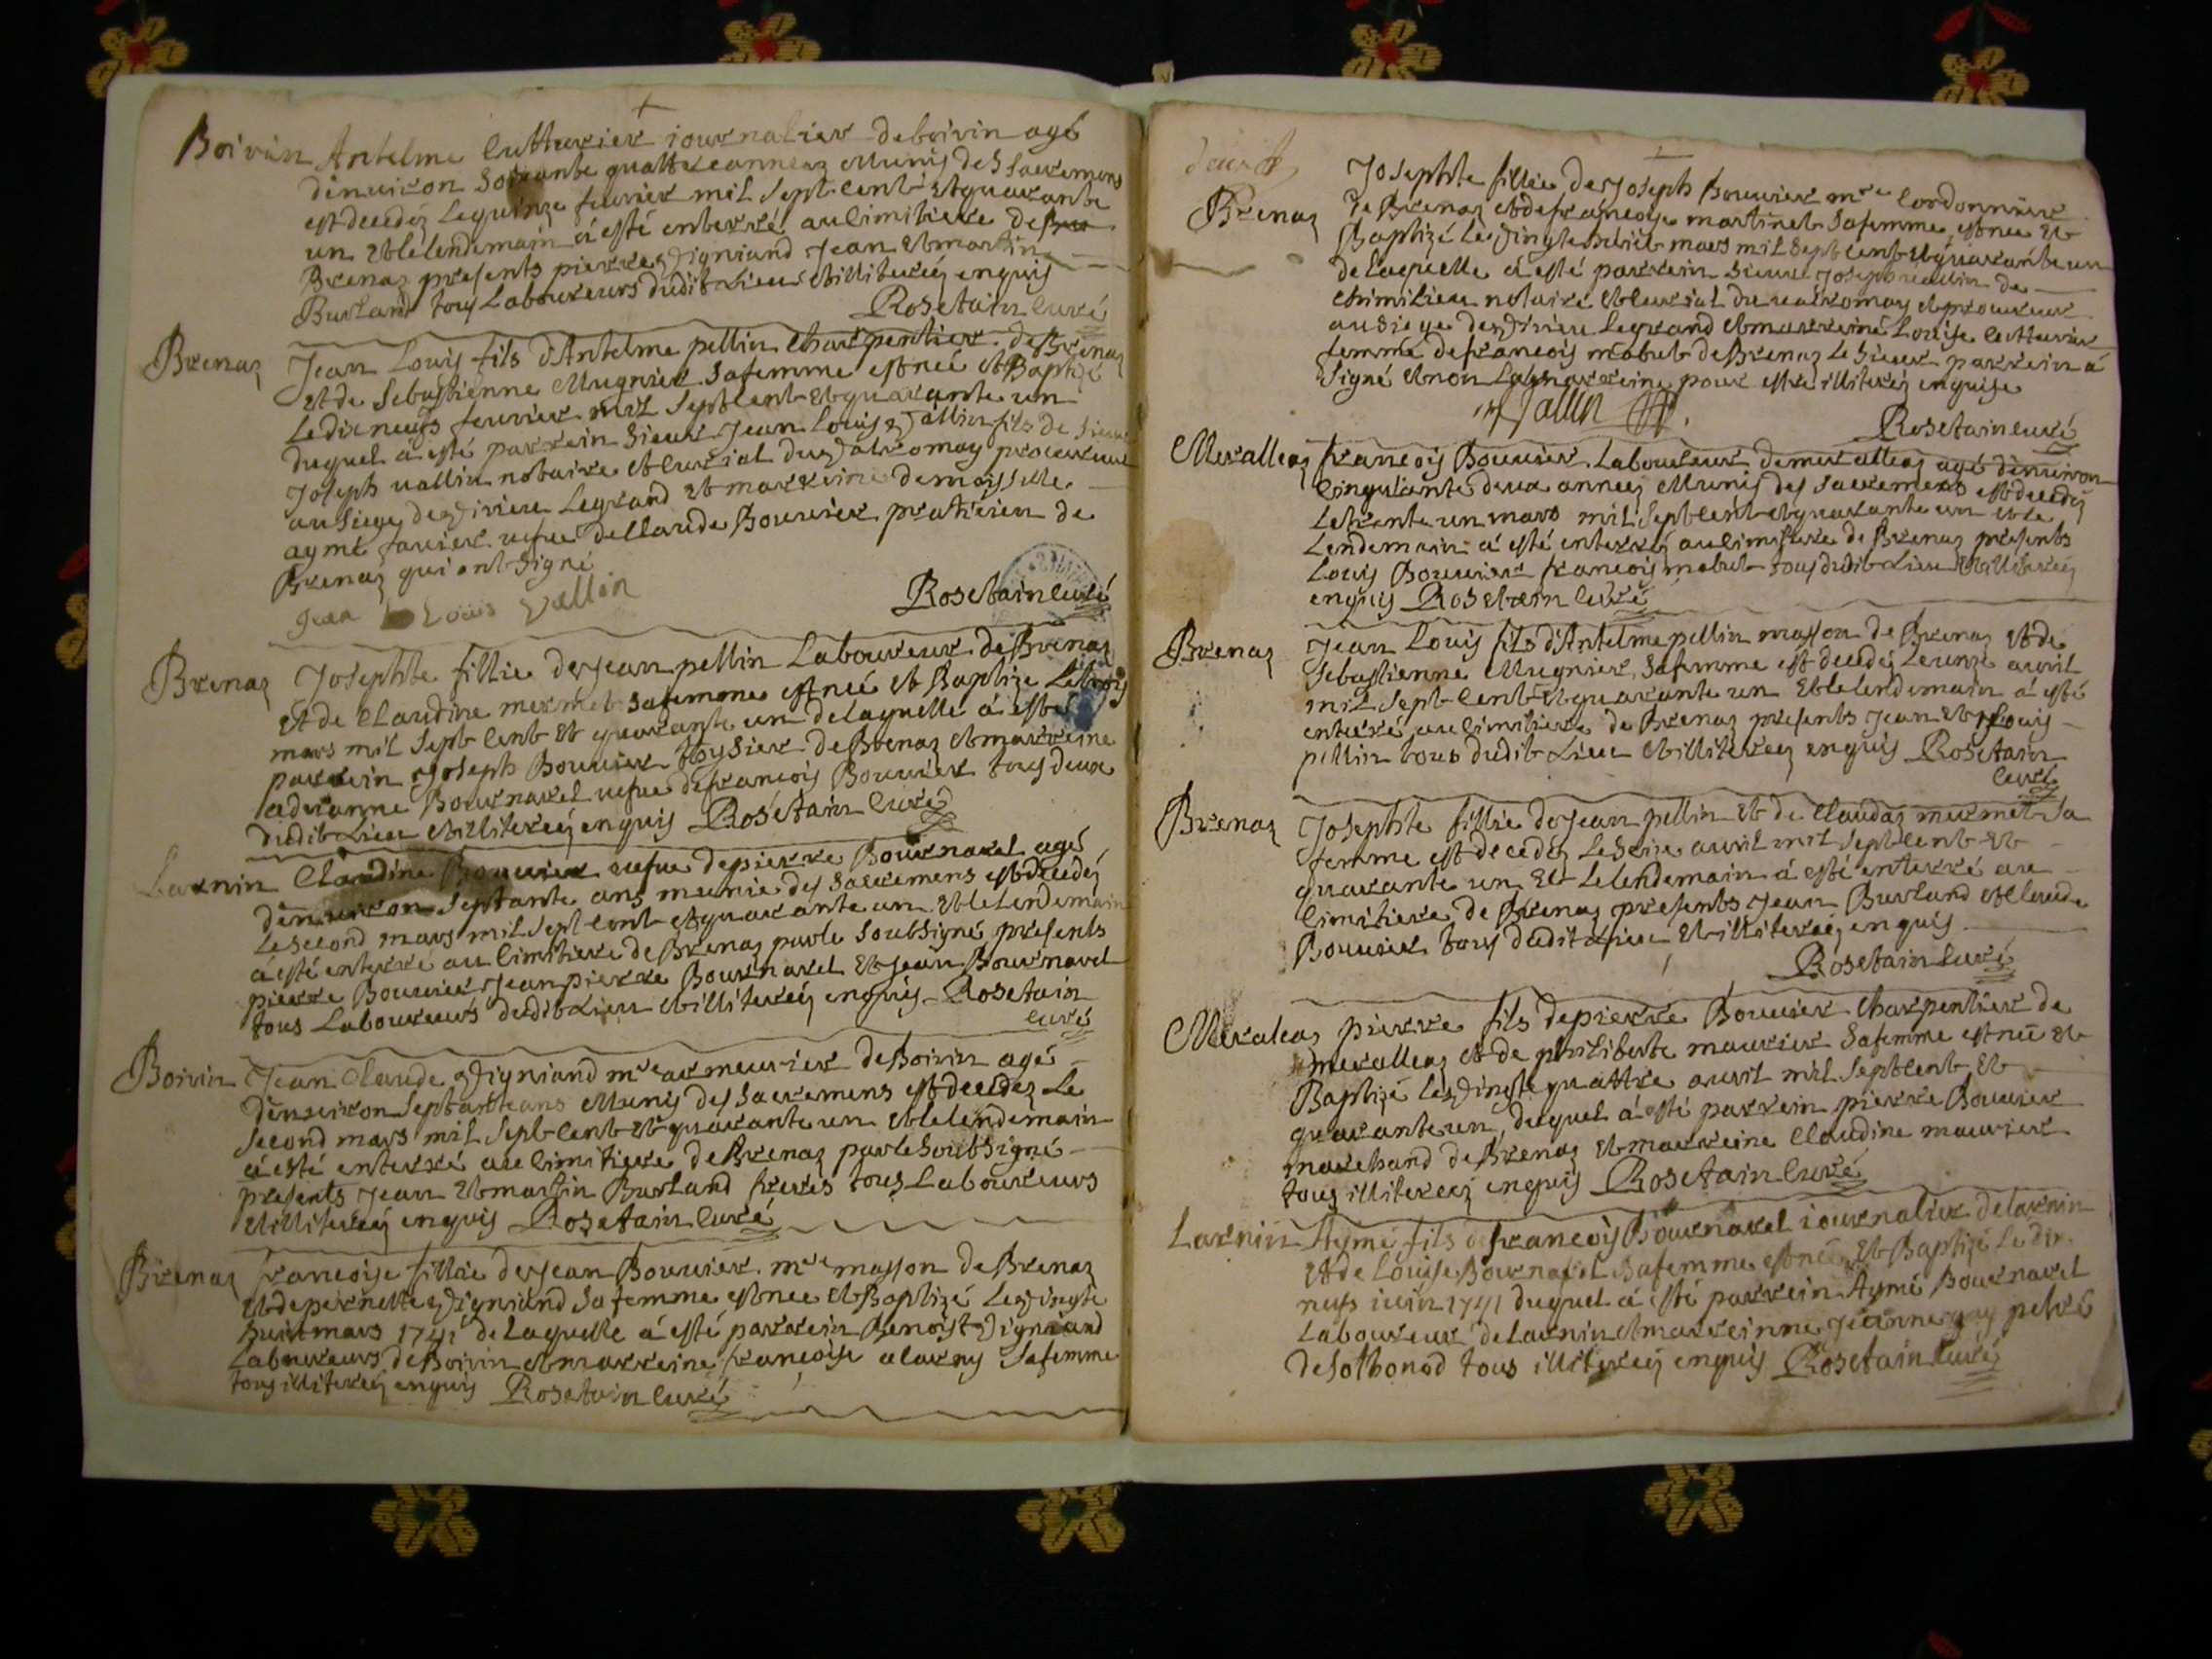 Boivin Antelme Cutturier iournalier de boivin agé
denuiron soixante quattre annees Munis des sacremens
est decedéz le quinze feurier mil sept cent et quarante
un et le lendemain á esté enterré au cimitiere de
Brenaz presents pierre Vigniand Jean et martin
Burland tous Laboureurs dudit Lieu et illiterés enquis
Rosetain curé
Brenaz Jean Louis fils d'Antelme pellin Charpentier de Brenaz
et de Sebastienne Mugnier sa femme est neé et Baptizé
le dix neufs feurier mil Sept cent et quarante un
duquel á esté parrein Sieur Jean Louis Vallin fils de Sieur
Joseph vallin notaire et curial du Valromay procureur
au siege de Virieu Legrand et marreine demoisselle
aymé favier vefue de Claude Bouuier praticien de
Brenaz qui ont signé
Jean Louis Vallin
Rosetain curé
Brenaz Josephte fillie de Jean pellin Laboureur de Brenaz
et de Claudine mermet sa femme est neé et Baptize le trois
mars mil Sept cent et quarante un de laquelle á esté
parrein Joseph Bouuier tissier de Brenaz et marreine
adrianne Bournarel vefue de francois Bouuier tous deux
dudit Lieu et illiterés enquis Rosetain curé
Larnin Claudine Bouuier vefue de pierre Bournarel agé
denuiron septante ans munie des sacremens est decedéz
le second mars mil sept cent et quarante un et le lendemain
á esté enterré au cimitiere de Brenaz par le soubsigné presents
pierre Bouuier Jean pierre Bournarel et Jean Bournarel
tous Laboureurs dudit Lieu et illiterés enquis Rosetain
curé
Boivin Jean Claude Vigniand mre armeurier de Boivin agé
denuiron septante ans Munis des sacremens est decedez le
second mars mil Sept cent et quarante un et le lendemain
á esté enterré au cimitiere de Brenaz par le soubsigné
presents Jean et martin Burland freres tous Laboureurs
et illiterés enquis Rosetain curé
Brenaz francoise fillie de Jean Bouuier mre masson de Brenaz
et de pernette Vigniand sa femme est nee et Baptizé le Vingte
huit mars 1741 de laquelle á esté parrein Benoist Vigniand
Laboureurs de Boivin et marreine francoise alarny sa femme
tous illiterés enquis Rosetain curé
Brenaz Josephte fillie de Joseph Bouuier mre Cordonnier
de Brenaz et de francoise martinet sa femme est nee et
Baptizé le Vingte huit mars mil sept cent et quarante un
de laquelle á esté parrein Sieur Joseph vallin de
Chimilieu notaire et curial du valromay et procureur
au siege de Virieu Legrand et marreine Louise Cutturier
femme de francois mabut de Brenaz le Sieur parrein á
signé et non la marreine pour estre illiteréz enquise
Vallin
Rosetain curé
Meralleaz francois Bouuier Laboureur de meralleaz agé denuiron
cinquante deux annees Munis des sacremens est decedéz
le trente un mars mil sept cent et quarante un et le
lendemain á esté enterréz au cimitiere de Brenaz presents
Louis Bouuier francois mabut tous dudit Lieu et illiterés
enquis Rosetain curé
Brenaz Jean Louis fils d'Antelme pellin masson de Brenaz et de
Sebastienne Mugnier sa femme est decedéz le unze auril
mil sept cent et quarante un et le lendemain á esté
enterré au cimitiere de Brenaz presents Jean et Louis
pellin tous dudit Lieu et illiterés enquis Rosetain
curé
Brenaz Josephte fillie de Jean pellin et de Claudaz mermet sa
femme est decedéz le seize auril mil sept cent et
quarante un et le lendemain á esté enterré au
cimitiere de Brenaz presents Jean Burland et Claude
Bouuier tous dudit Lieu et illiterés enquis
Rosetain curé
Meraleaz pierre fils de pierre Bouuier Charpentier de
meralleaz et de philiberte maurier sa femme est neé et
Baptizé le Vingte quattre auril mil Sept cent et
quarante un duquel á esté parrein pierre Bouuier
marchand de Brenaz et marreine Claudine maurier
tous illiterés enquis Rosetain curé
Larnin Aymé fils de francois Bournarel iournalier de larnin
et de Louise Bournarel sa femme est neé et Baptizé le dix
neufs iuin 1741 duquel á esté parrein Aymé Bournarel
Laboureur de Larnin et marreinne Jeanne gay
de Sothonod tous illiterés enquis Rosetain curé